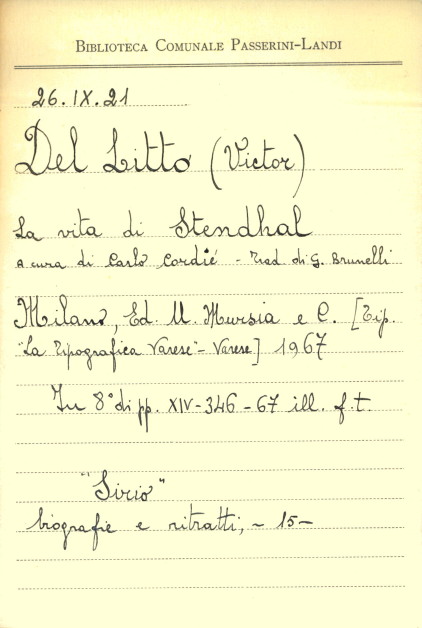 BIBLIOTECA COMUNALE PASSERINI-LANDI
26.IX.21
Del Litto (Victor)
La vita di Stendhal
A cura di Carlo Cordié - Trad. di G. Brunelli
Milano, Ed. U. Mursia e C. [Tip.
"La Tipografica Varese" - Varese] 1967
In 8° di pp. XIV-346-67 ill. f.t.
"Sirio"
biografie e ritratti, - 15-